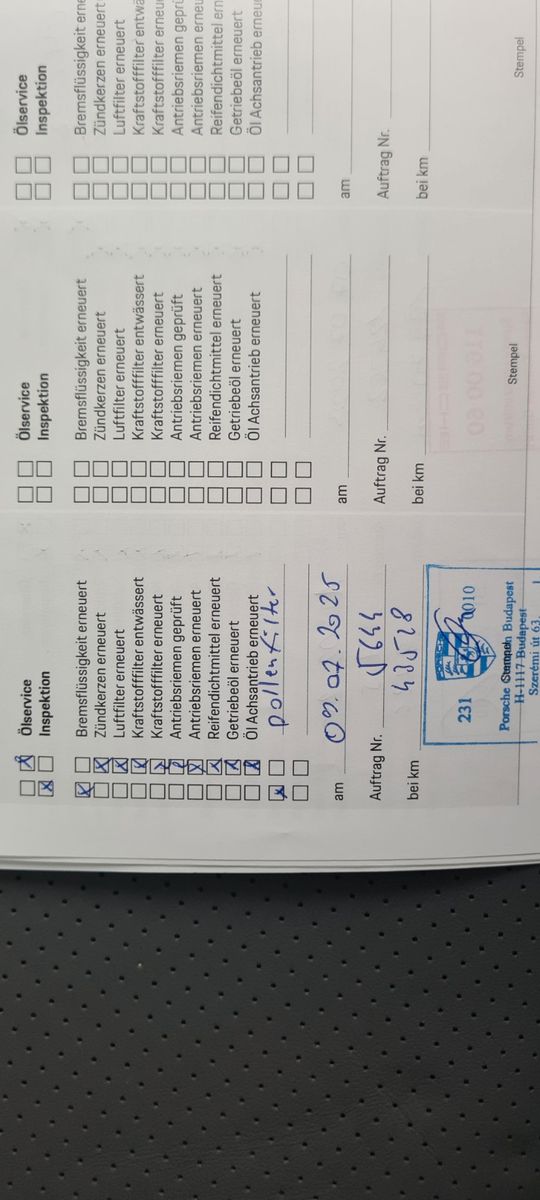 Ölservice
Inspektion
Bremsflüssigkeit erneuert
Zündkerzen erneuert
Luftfilter erneuert
Kraftstofffilter entwässert
Kraftstofffilter erneuert
Antriebsriemen geprüft
Antriebsriemen erneuert
Reifendichtmittel erneuert
Getriebeöl erneuert
Öl Achsantrieb erneuert
pollenfilter
am 09.07.2025
Auftrag Nr. 5644
bei km 43528
231
0010
Porsche Budapest
H-1117 Budapest
Szerémi út 63.
Stempel
Ölservice
Inspektion
Bremsflüssigkeit erneuert
Zündkerzen erneuert
Luftfilter erneuert
Kraftstofffilter entwässert
Kraftstofffilter erneuert
Antriebsriemen geprüft
Antriebsriemen erneuert
Reifendichtmittel erneuert
Getriebeöl erneuert
Öl Achsantrieb erneuert
am
Auftrag Nr.
bei km
Stempel
Ölservice
Inspektion
Bremsflüssigkeit erne
Zündkerzen erneuert
Luftfilter erneuert
Kraftstofffilter entwä
Kraftstofffilter erneu
Antriebsriemen geprü
Antriebsriemen erneu
Reifendichtmittel ern
Getriebeöl erneuert
Öl Achsantrieb erneue
am
Auftrag Nr.
bei km
Stempel